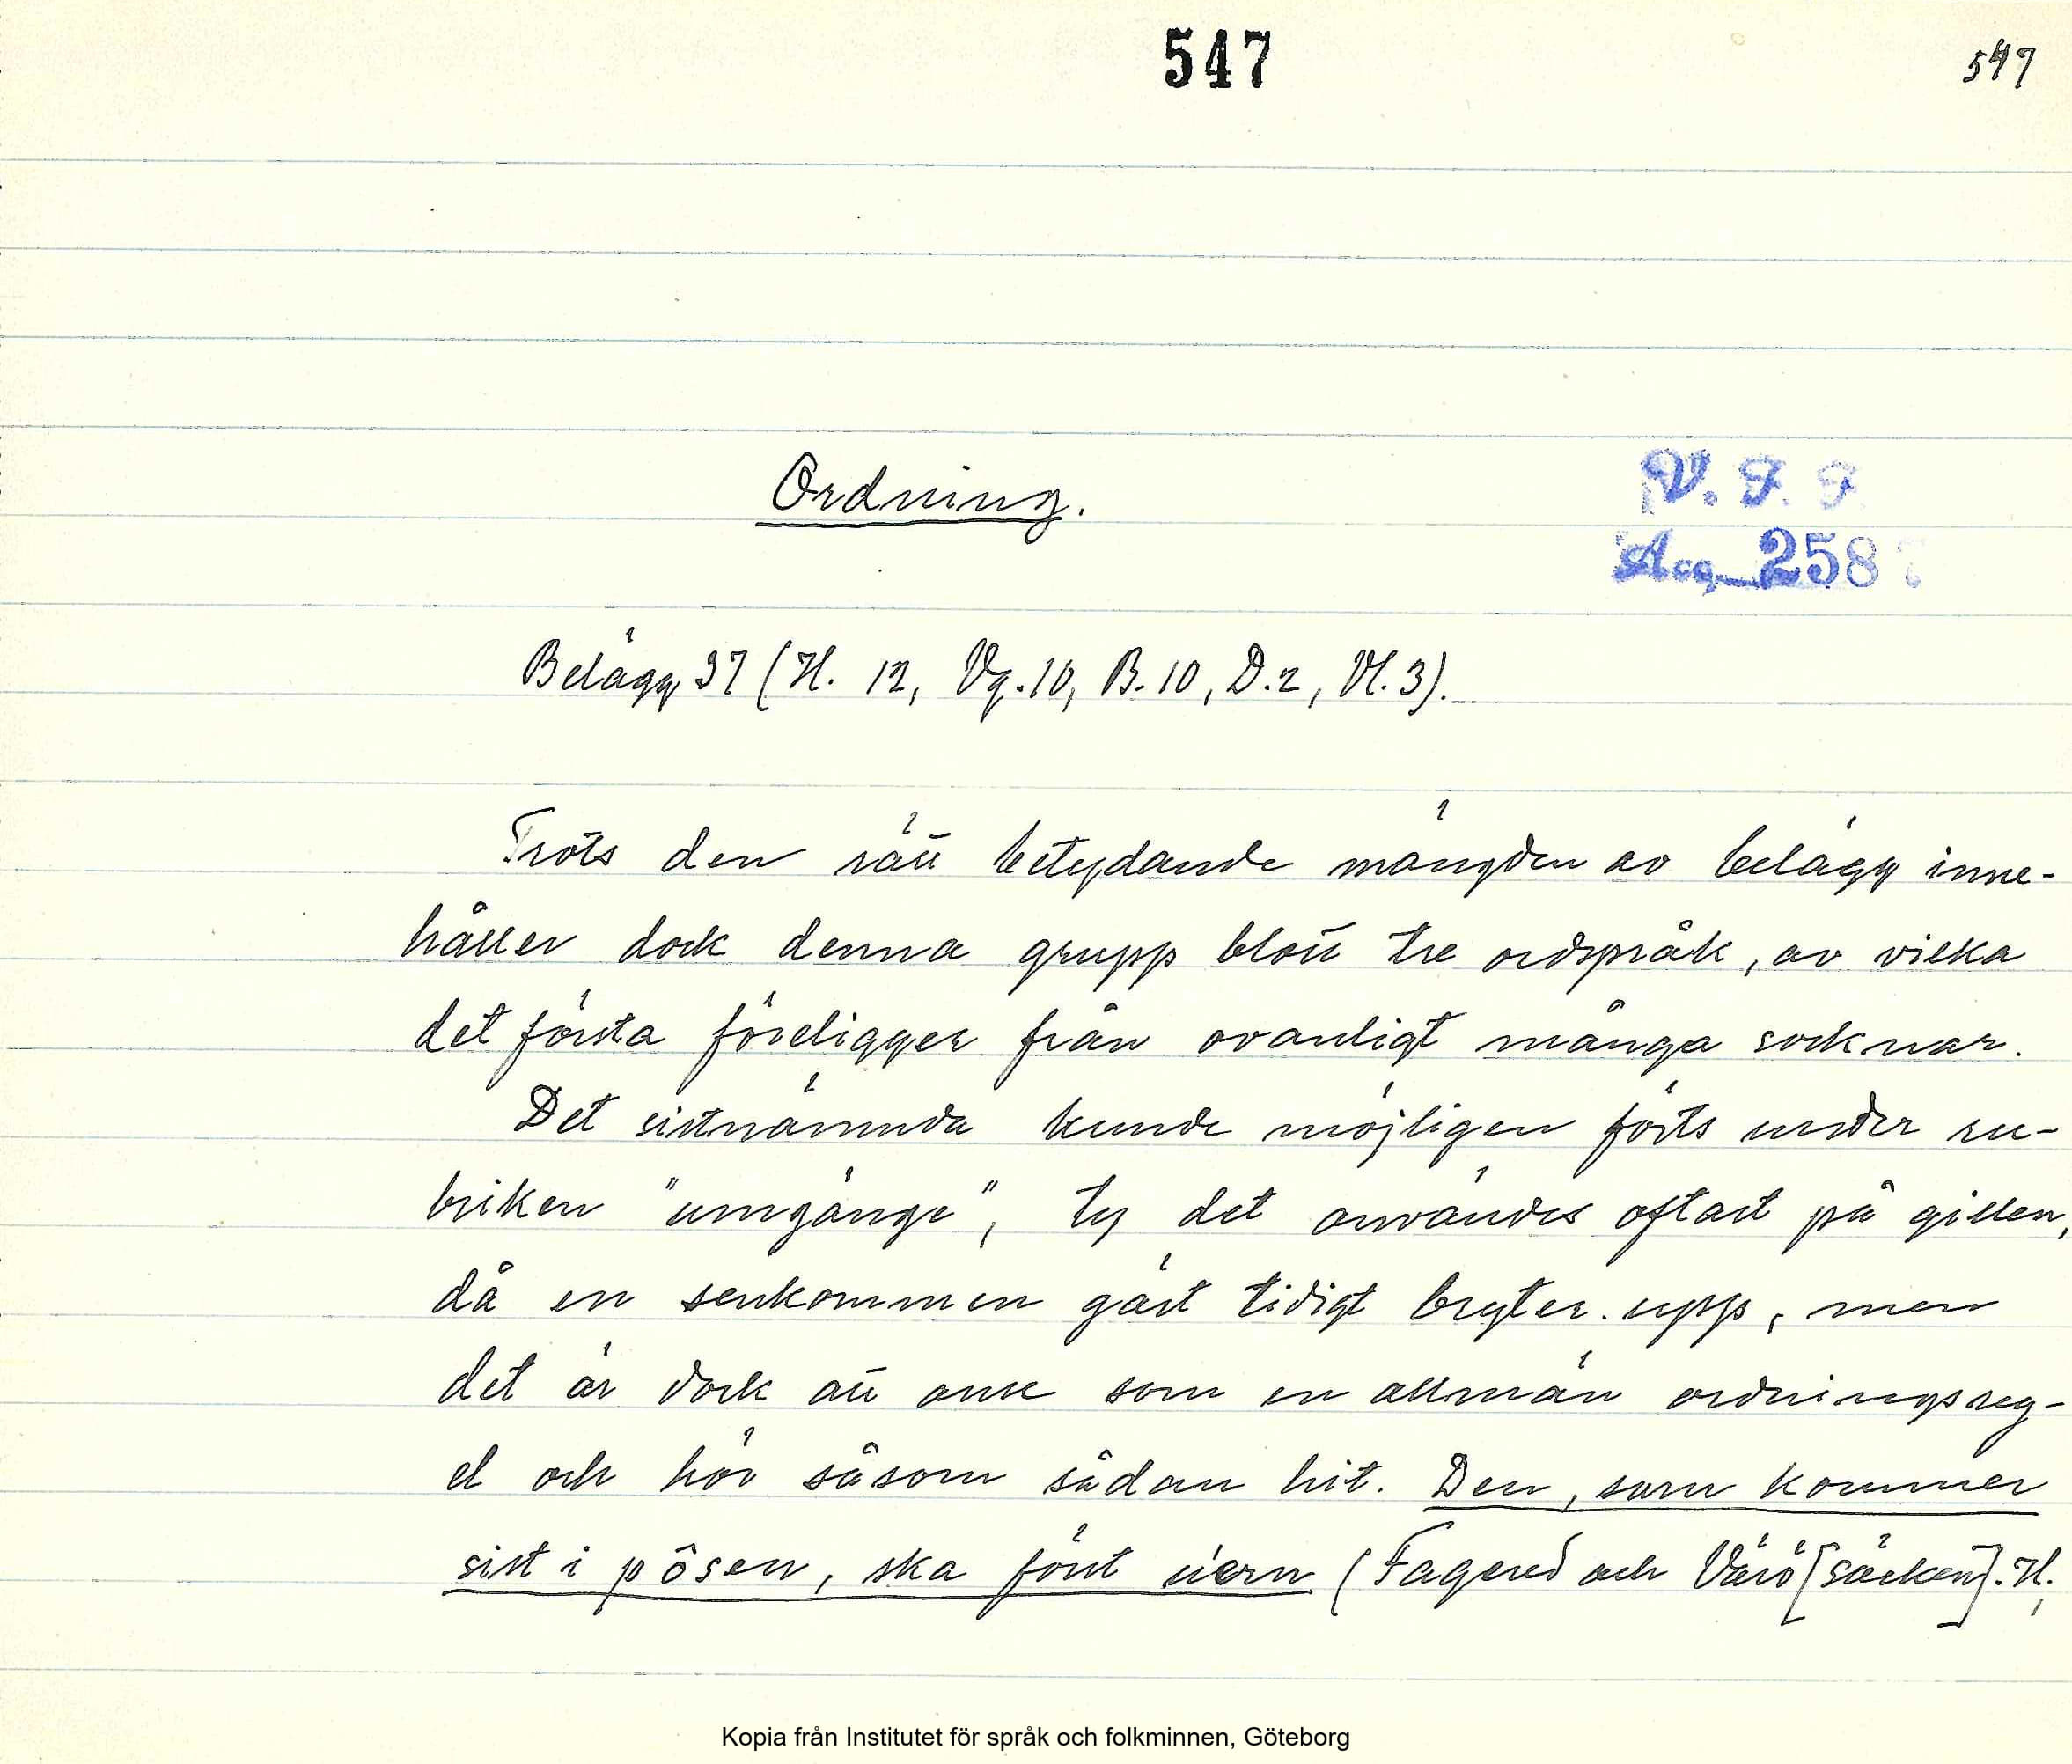 547
547
Ordning.
V. F. F.
Acc. 258
Belägg 37 (H. 12, Vg. 10, B. 10, D. 2, Vl. 3).
Trots den rätt betydande mängden av belägg inne-
håller dock denna grupp blott tre ordspråk, av vilka
det första föreligger från ovanligt många socknar.
Det sistnämnda kunde möjligen förts under ru-
briken "umgänge", ty det användes oftast på gillen,
då en senkommen gäst tidigt bryter upp, men
det är dock att anse som en allmän ordningsreg-
el och hör såsom sådan hit. Den, som kommer
sist i pôsen, ska först ùern (Fagered och Värö [säcken]. H.;
Kopia från Institutet för språk och folkminnen, Göteborg